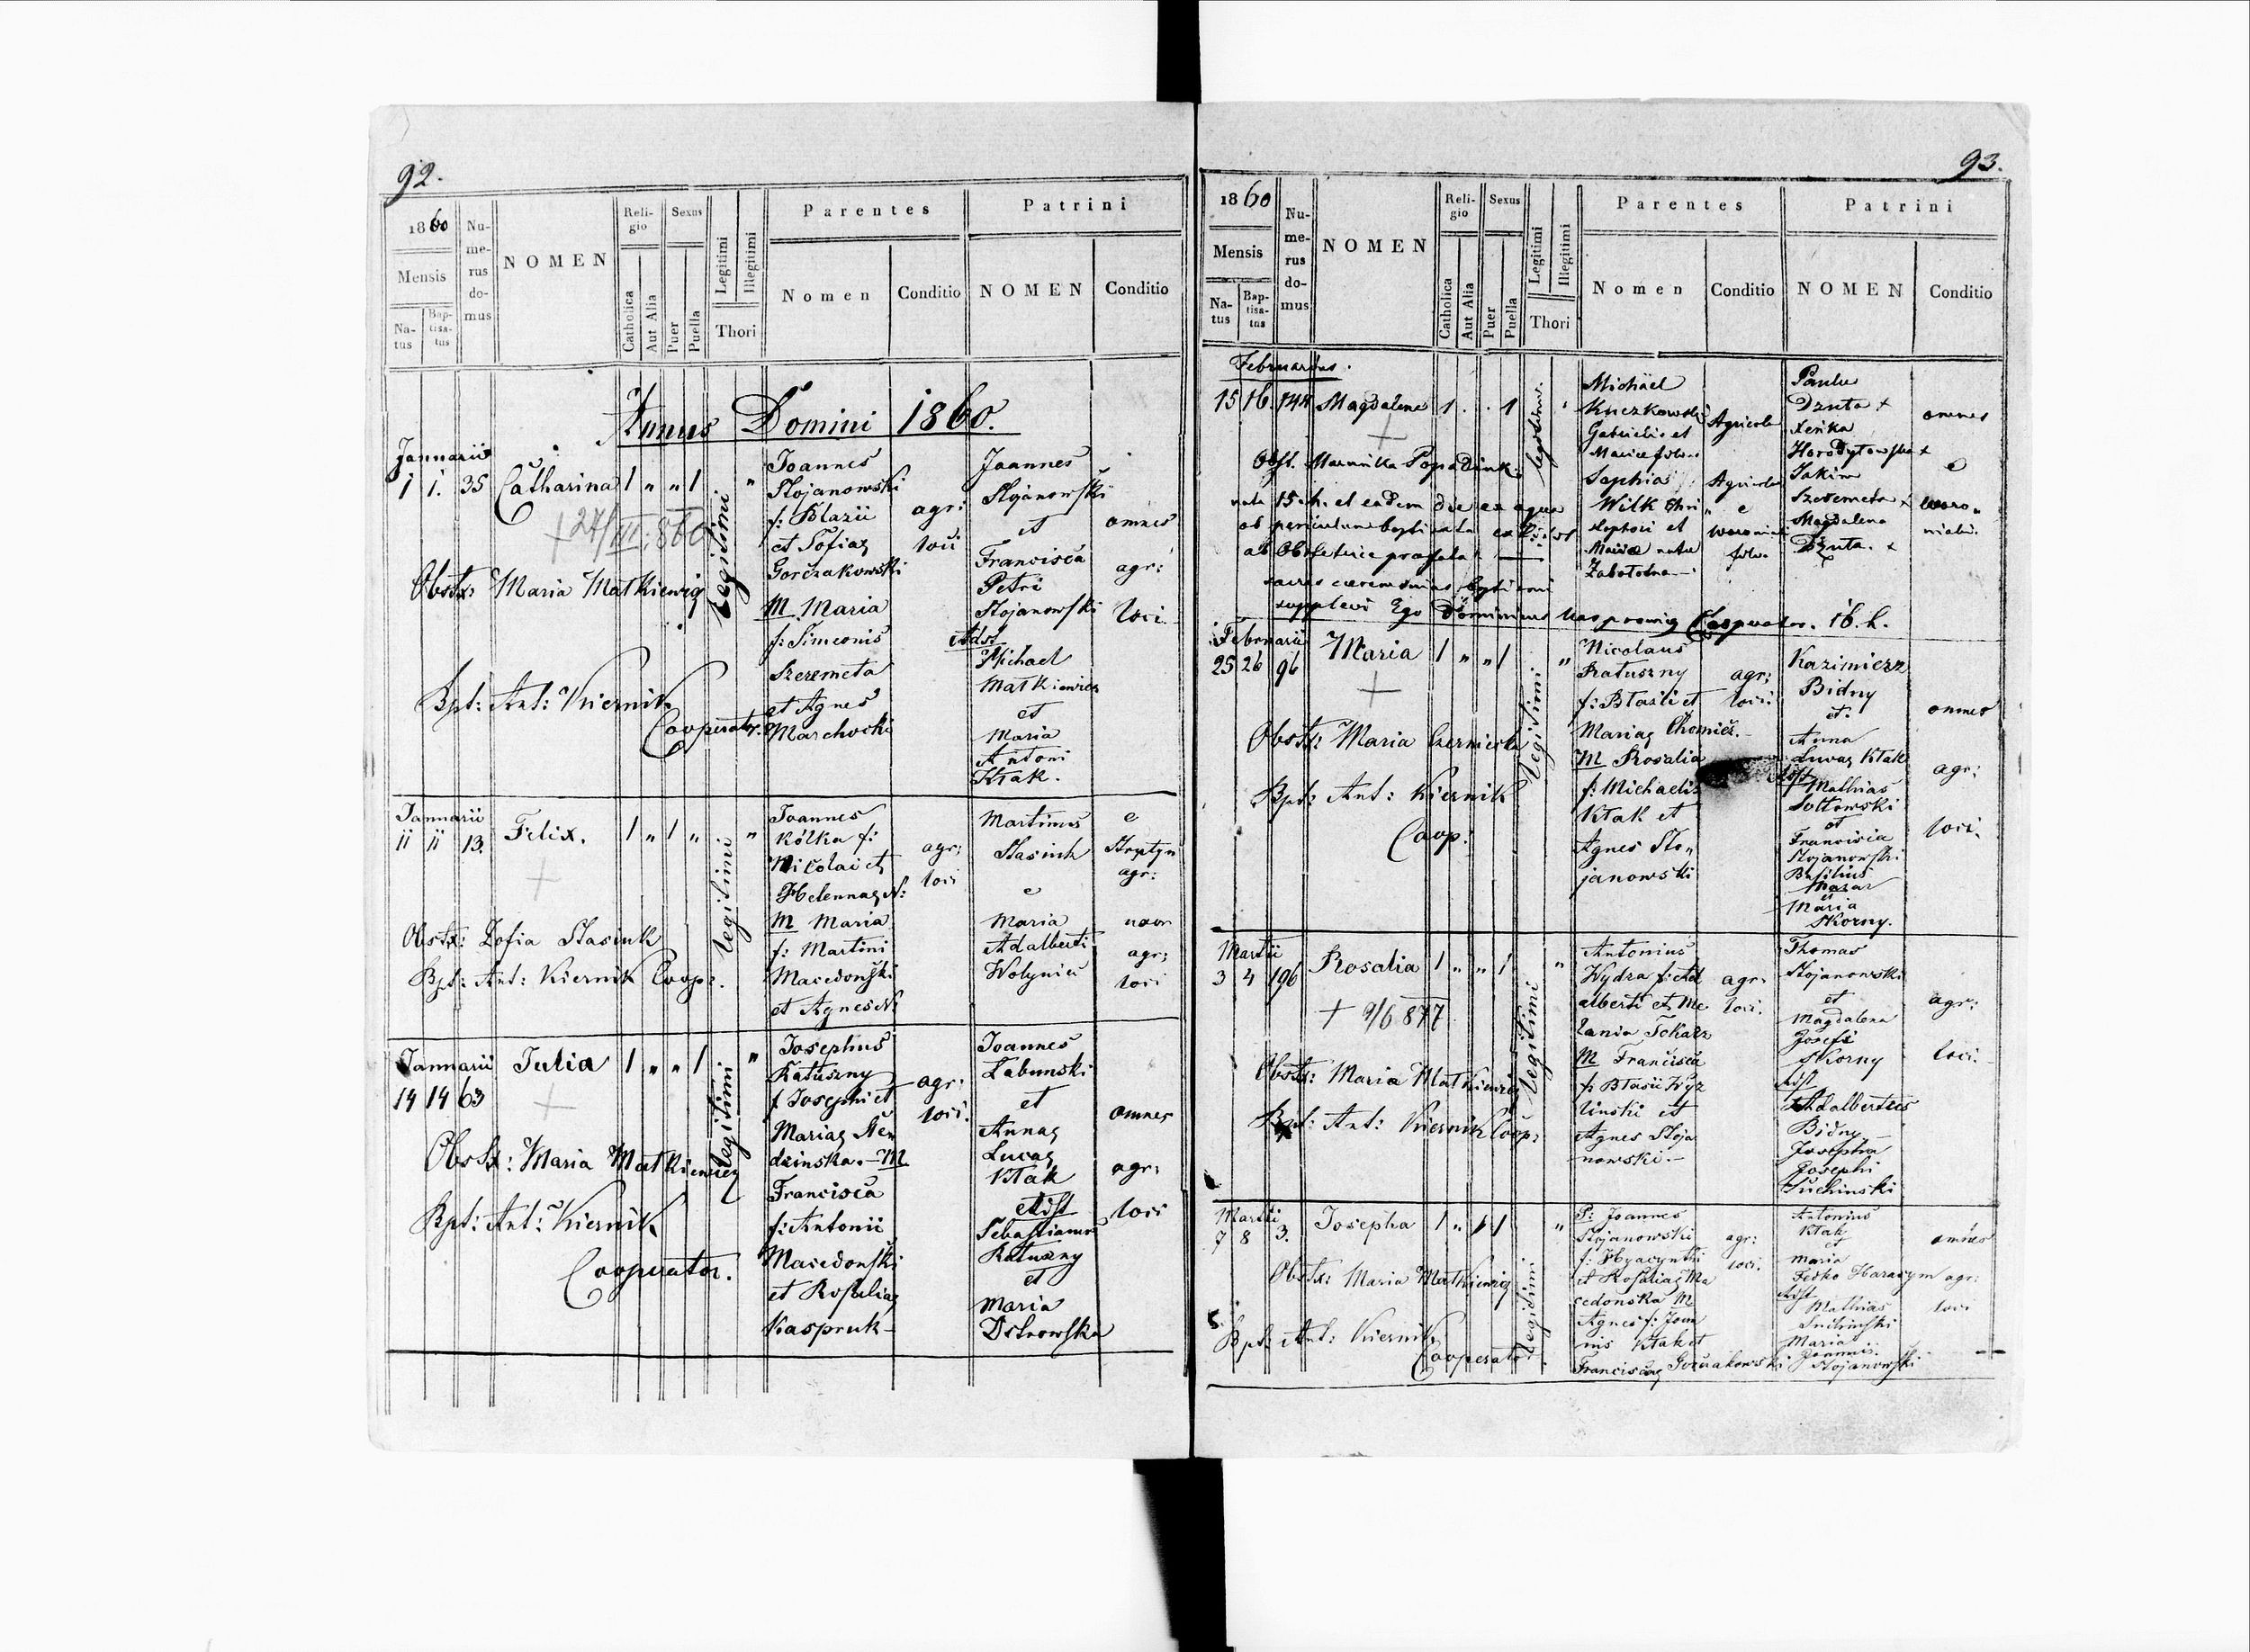 92.
1860
Mensis
Na-
tus
Bap-
tisa-
tus
Nu-
me-
rus
do-
mus
NOMEN
Reli-
gio
Catholica
Aut Alia
Sexus
Puer
Puella
Legitimi
Illegitimi
Thori
Parentes
Nomen
Conditio
Patrini
NOMEN
Conditio
Annus Domini 1860.
Januarii
1 1. 35 Catharina 1 " " 1
+ 27/III 860
Obstx: Maria Matkiewicz
Bpt: Ant: Kiernik
Cooperator.
legitimi
"
Joannes
Stojanowski
f: Blazii
et Sofiaę
Gorczakowski
M Maria
f: Simeonis
Szeremeta
et Agnes
Marchocki
agr:
loci
Joannes
Stojanowski
et
Francisca
Petri
Stojanowski
Adst
Michael
Matkiewicz
et
Maria
Antoni
Kłak.
omnes
agr:
loci
Januarii
11 11 13. Felix. 1 " 1 "
+
Obstx: Zofia Stasiuk
Bpt: Ant: Kiernik Coop:.
legitimi
"
Joannes
Kólka f:
Nicolai et
Helennaę N:
M Maria
f: Martini
Macedoński
et Agnes N.
agr:
loci
Martinus
Stasiuk
e
Maria
Adalberti
Wolyniec
e
agr:
uxor
agr:
loci
Januarii
14 14 63 Julia 1 " " 1
+
Obstx: Maria Matkiewicz
Bpt: Ant: Kiernik
Cooperator.
legitimi
"
Josephus
Ratuszny
f Josephi et
Mariaę
dzinska.– M
Francisca
f: Antonii
Macedoński
et Rosaliaę
Kaspruk–
agr:
loci.
Joannes
Labunski
et
Annaę
Lucaę
Kłak
Adst
Sebastianus
Ratuszny
et
Maria
Ostrowska
omnes
agr:
loci
93.
1860
Mensis
Na-
tus
Bap-
tisa-
tus
Nu-
me-
rus
do-
mus
NOMEN
Reli-
gio
Catholica
Aut Alia
Sexus
Puer
Puella
Legitimi
Illegitimi
Thori
Parentes
Nomen
Conditio
Patrini
NOMEN
Conditio
Februarius.
15 16. 144 Magdalena 1 . . 1
+
Obst. Marunka
nata 15. h. et eadem die ex aqua
ob periculum
ab Obstetrice praefata
supplevi Ego Dominicus Cooperator. 16. h.
Michael
Kuczkowski
Gabrielis et
Sophia
Wilk Chri
stophori et
Maria
Zabolotna–
Agricola
Agricola
e
Paulu
Dzuta +
Xeńka
Horodytowska +
Jakim
Szeremeta +
Magdalena
Dzuta. +
omnes
e
Februarii
25 26 96 Maria 1 " " 1
+
Obstx: Maria
Bpt: Ant: Kiernik
Coop:
legitimi
"
Nicolaus
Ratuszny
f: Blasii et
Mariaę Chomicz.–
M Rosalia
f: Michaelis
Kłak et
Agnes Sto„
janowski
agr:
loci:
Kazimierz
Bidny
et.
Anna
Lucaę Kłak
Adst
Mathias
Sołtowski
et
Francisca
Stojanowski
Basilius
Mazar
et
Maria
Skorny.
omnes
agr:
loci.
Martii
3 4 196 Rosalia 1 " " 1
+ 9/6 877
Obstx: Maria Matkiewicz
Bpt: Ant: Kiernik Coop:
legitimi
"
Antonius
Wydra f: Ad
alberti et Me
lania Tokarz
M Francisca
f: Blasii Wyz
linski et
Agnes Stoja
nowski.–
agr:
loci.
Thomas
Stojanowski
et
Magdalena
Josefi
Skorny
Adst
Adalbertus
Bidny
Josepha
Josephi
Suchinski
agr:
loci.
Martii
7 8 3. Josepha 1 " 1
Obstx: Maria Matkiewicz
Bpt: Ant: Kiernik
Cooperator.
legitimi
"
P: Joannes
Stojanowski
f: Hyacynthi
et Rosaliaę Ma
cedonska M
Agnes f: Joan
nis Kłak et
Franciscaę Gorczakowski
agr:
loci.
Antonius
Kłak
et
Maria
Fedko Harasym
Adst
Mathias
Suchinski
Maria
Joannis.
Stojanowski
omnes
agr:
loci